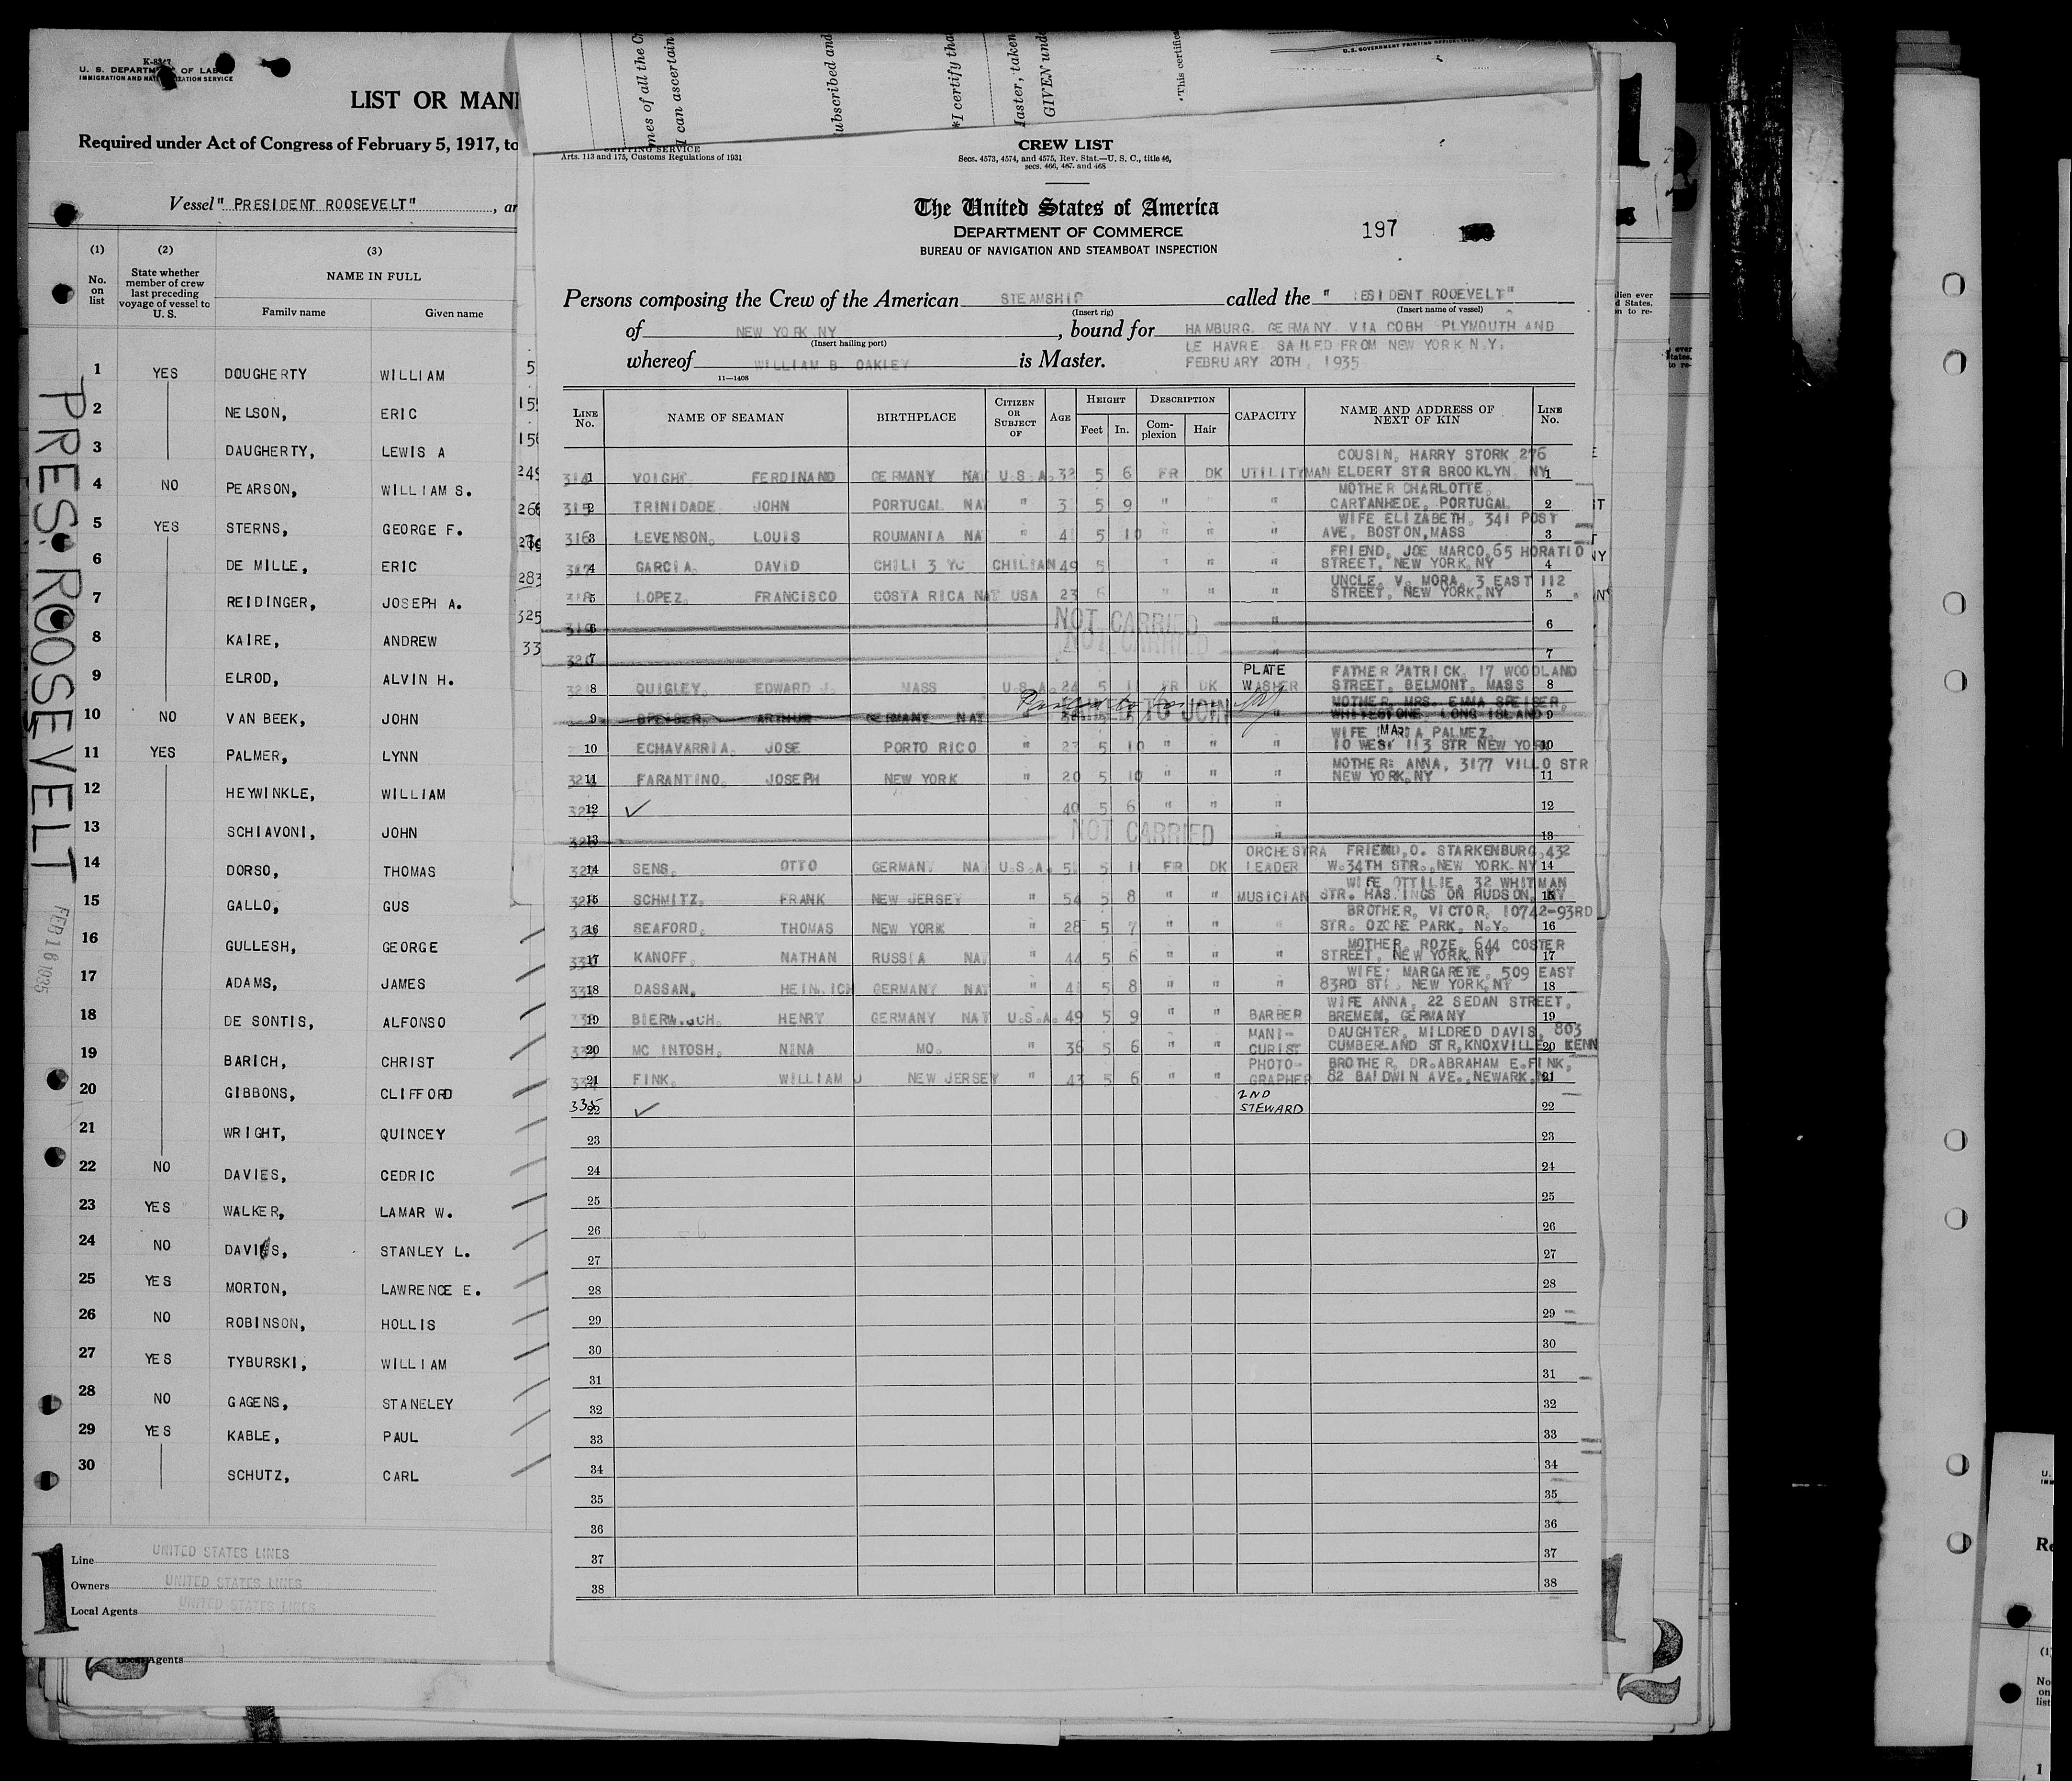 U. S. DEPARTMENT OF LABOR
IMMIGRATION AND NATURALIZATION SERVICE
LIST OR MANI
Required under Act of Congress of February 5, 1917, to
Vessel " PRESIDENT ROOSEVELT" , ar
(1) (2) (3)
No. on list
State whether member of crew last preceding voyage of vessel to U. S.
NAME IN FULL
Family name Given name
1 YES DOUGHERTY WILLIAM
2 NELSON, ERIC
3 DAUGHERTY, LEWIS A
4 NO PEARSON, WILLIAM S.
5 YES STERNS, GEORGE F.
6 DE MILLE, ERIC
7 REIDINGER, JOSEPH A.
8 KAIRE, ANDREW
9 ELROD, ALVIN H.
10 NO VAN BEEK, JOHN
11 YES PALMER, LYNN
12 HEYWINKLE, WILLIAM
13 SCHIAVONI, JOHN
14 DORSO, THOMAS
15 GALLO, GUS
16 GULLESH, GEORGE
17 ADAMS, JAMES
18 DE SONTIS, ALFONSO
19 BARICH, CHRIST
20 GIBBONS, CLIFFORD
21 WRIGHT, QUINCEY
22 NO DAVIES, CEDRIC
23 YES WALKER, LAMAR W.
24 NO DAVIES, STANLEY L.
25 YES MORTON, LAWRENCE E.
26 NO ROBINSON, HOLLIS
27 YES TYBURSKI, WILLIAM
28 NO GAGENS, STANELEY
29 YES KABLE, PAUL
30 SCHUTZ, CARL
Line UNITED STATES LINES
Owners UNITED STATES LINES
Local Agents UNITED STATES LINES
1
Local Agents
PRES. ROOSEVELT
FEB 16 1935
mes of all the C
I can ascertain
ubscribed and
*I certify tha
laster, taken
GIVEN unde
*This certific
U.S. GOVERNMENT PRINTING OFFICE
SHIPPING SERVICE
Arts. 113 and 175, Customs Regulations of 1931
CREW LIST
Secs. 4573, 4574, and 4575, Rev. Stat.—U. S. C., title 46,
secs. 466, 467, and 468
The United States of America
DEPARTMENT OF COMMERCE
BUREAU OF NAVIGATION AND STEAMBOAT INSPECTION
197
Persons composing the Crew of the American STEAMSHIP called the " ESIDENT ROOEVELT"
(Insert rig) (Insert name of vessel)
of NEW YORK NY , bound for HAMBURG. GERMANY VIA COBH PLYMOUTH AND
(Insert hailing port)
LE HAVRE SAILED FROM NEW YORK N.Y.
whereof WILLIAM B. OAKLEY is Master. FEBRUARY 20TH, 1935
11—1408
LINE No. NAME OF SEAMAN BIRTHPLACE CITIZEN OR SUBJECT OF AGE HEIGHT Feet In. DESCRIPTION Complexion Hair CAPACITY NAME AND ADDRESS OF NEXT OF KIN LINE No.
COUSIN, HARRY STORK 276
1 VOIGHT FERDINAND GERMANY NAT U.S.A. 32 5 6 FR DK UTILITYMAN ELDERT STR BROOKLYN NY 1
MOTHER CHARLOTTE,
315 2 TRINIDADE JOHN PORTUGAL NAT " 3 5 9 " " " CARTANHEDE, PORTUGAL 2
WIFE ELIZABETH, 341 POST
316 3 LEVENSON, LOUIS ROUMANIA NAT " 4 5 10 " " " AVE, BOSTON, MASS 3
FRIEND, JOE MARCO, 65 HORATIO
317 4 GARCIA, DAVID CHILI 3 YC CHILIAN 49 5 " " " STREET, NEW YORK, NY 4
UNCLE, V. MORA, 3 EAST 112
318 5 LOPEZ, FRANCISCO COSTA RICA NAT USA 23 6 " " " STREET, NEW YORK, NY 5
319 6 NOT CARRIED " 6
7 NOT CARRIED " 7
PLATE FATHER PATRICK, 17 WOODLAND
8 QUIGLEY, EDWARD J. MASS U.S.A. 24 5 11 FR DK WASHER STREET, BELMONT, MASS 8
MOTHER, MRS. EMMA SPEISER,
9 SPEISER, ARTHUR GERMANY NAT FAILED TO JOIN " WHITESTONE, LONG ISLAND 9
WIFE MARIA PALMEZ,
10 ECHAVARRIA, JOSE PORTO RICO " 23 5 10 " " " 10 WEST 113 STR NEW YORK 10
MOTHER: ANNA, 3177 VILLO STR
11 FARANTINO, JOSEPH NEW YORK " 20 5 10 " " " NEW YORK, NY 11
12 ✓ 40 5 6 " " " 12
13 NOT CARRIED " 13
ORCHESTRA FRIEND, O. STARKENBURG, 432
14 SENS, OTTO GERMANY NAT U.S.A. 5 5 11 FR DK LEADER W. 34TH STR., NEW YORK, NY 14
WIFE OTTILIE, 32 WHITMAN
15 SCHMITZ, FRANK NEW JERSEY " 54 5 8 " " MUSICIAN STR. HASTINGS ON HUDSON, NY 15
BROTHER, VICTOR, 10742-93RD
16 SEAFORD, THOMAS NEW YORK " 28 5 7 " " " STR. OZONE PARK, N.Y. 16
MOTHER, ROZE, 644 COSTER
17 KANOFF, NATHAN RUSSIA NAT " 44 5 6 " " " STREET, NEW YORK, NY 17
WIFE: MARGARETE, 509 EAST
18 DASSAN, HEINRICH GERMANY NAT " 4 5 8 " " " 83RD ST. NEW YORK, NY 18
WIFE ANNA, 22 SEDAN STREET,
19 HENRY GERMANY NAT U.S.A. 49 5 9 " " BARBER BREMEN, GERMANY 19
MANI- DAUGHTER, MILDRED DAVIS, 803
20 MC INTOSH, NINA MO. " 36 5 6 " " CURIST CUMBERLAND STR, KNOXVILLE, KENN 20
PHOTO- BROTHER, DR. ABRAHAM E. FINK,
21 FINK, WILLIAM J NEW JERSEY " 43 5 6 " " GRAPHER 82 BALDWIN AVE., NEWARK, 21
335 2ND
22 ✓ STEWARD 22
23 23
24 24
25 25
26 26
27 27
28 28
29 29
30 30
31 31
32 32
33 33
34 34
35 35
36 36
37 37
38 38